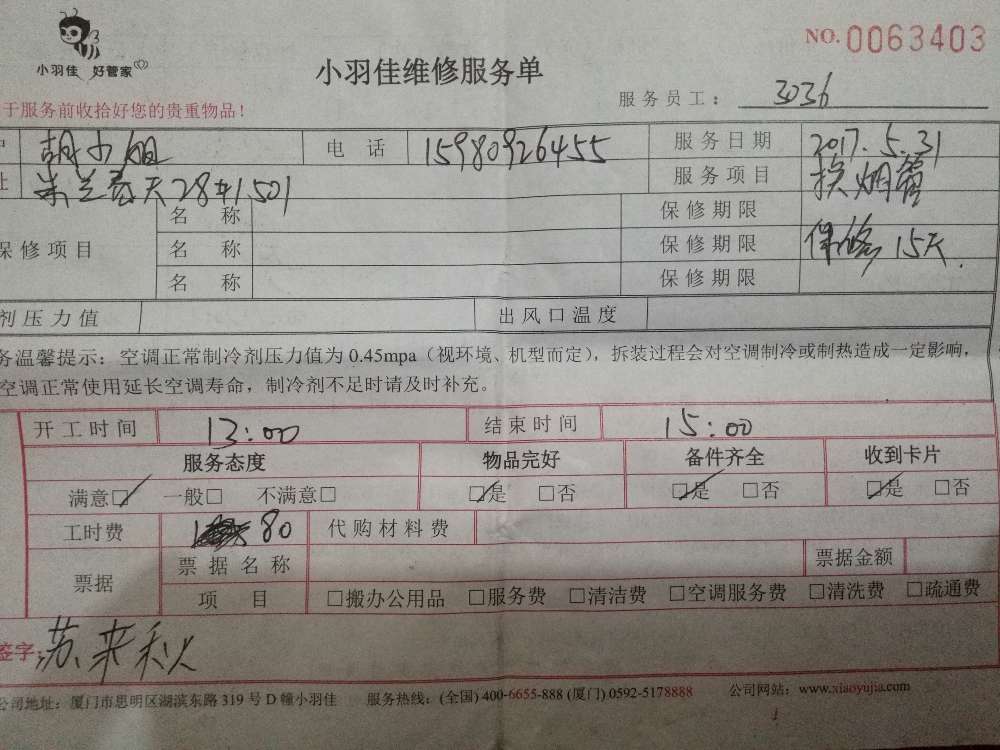 小羽佳 好管家
小羽佳维修服务单
NO. 0063403
服务员工: 3036
于服务前收拾好您的贵重物品!
胡小姐 电话 15980926455 服务日期 2017.5.31
址 米兰春天28#1501 服务项目 换烟管
保修项目 名称 保修期限
名称 保修期限 保修15天.
名称 保修期限
剂压力值 出风口温度
务温馨提示: 空调正常制冷剂压力值为0.45mpa(视环境、机型而定), 拆装过程会对空调制冷或制热造成一定影响,
空调正常使用延长空调寿命, 制冷剂不足时请及时补充。
开工时间 13:00 结束时间 15:00
服务态度 物品完好 备件齐全 收到卡片
满意☑ 一般□ 不满意□ ☑是 □否 ☑是 □否 ☑是 □否
工时费 80 代购材料费
票据 票据名称 票据金额
项目 □搬办公用品 □服务费 □清洁费 □空调服务费 □清洗费 □疏通费
签字: 苏来秋
公司地址: 厦门市思明区湖滨东路319号D幢小羽佳 服务热线: (全国) 400-6655-888 (厦门) 0592-5178888 公司网站: www.xiaoyujia.com